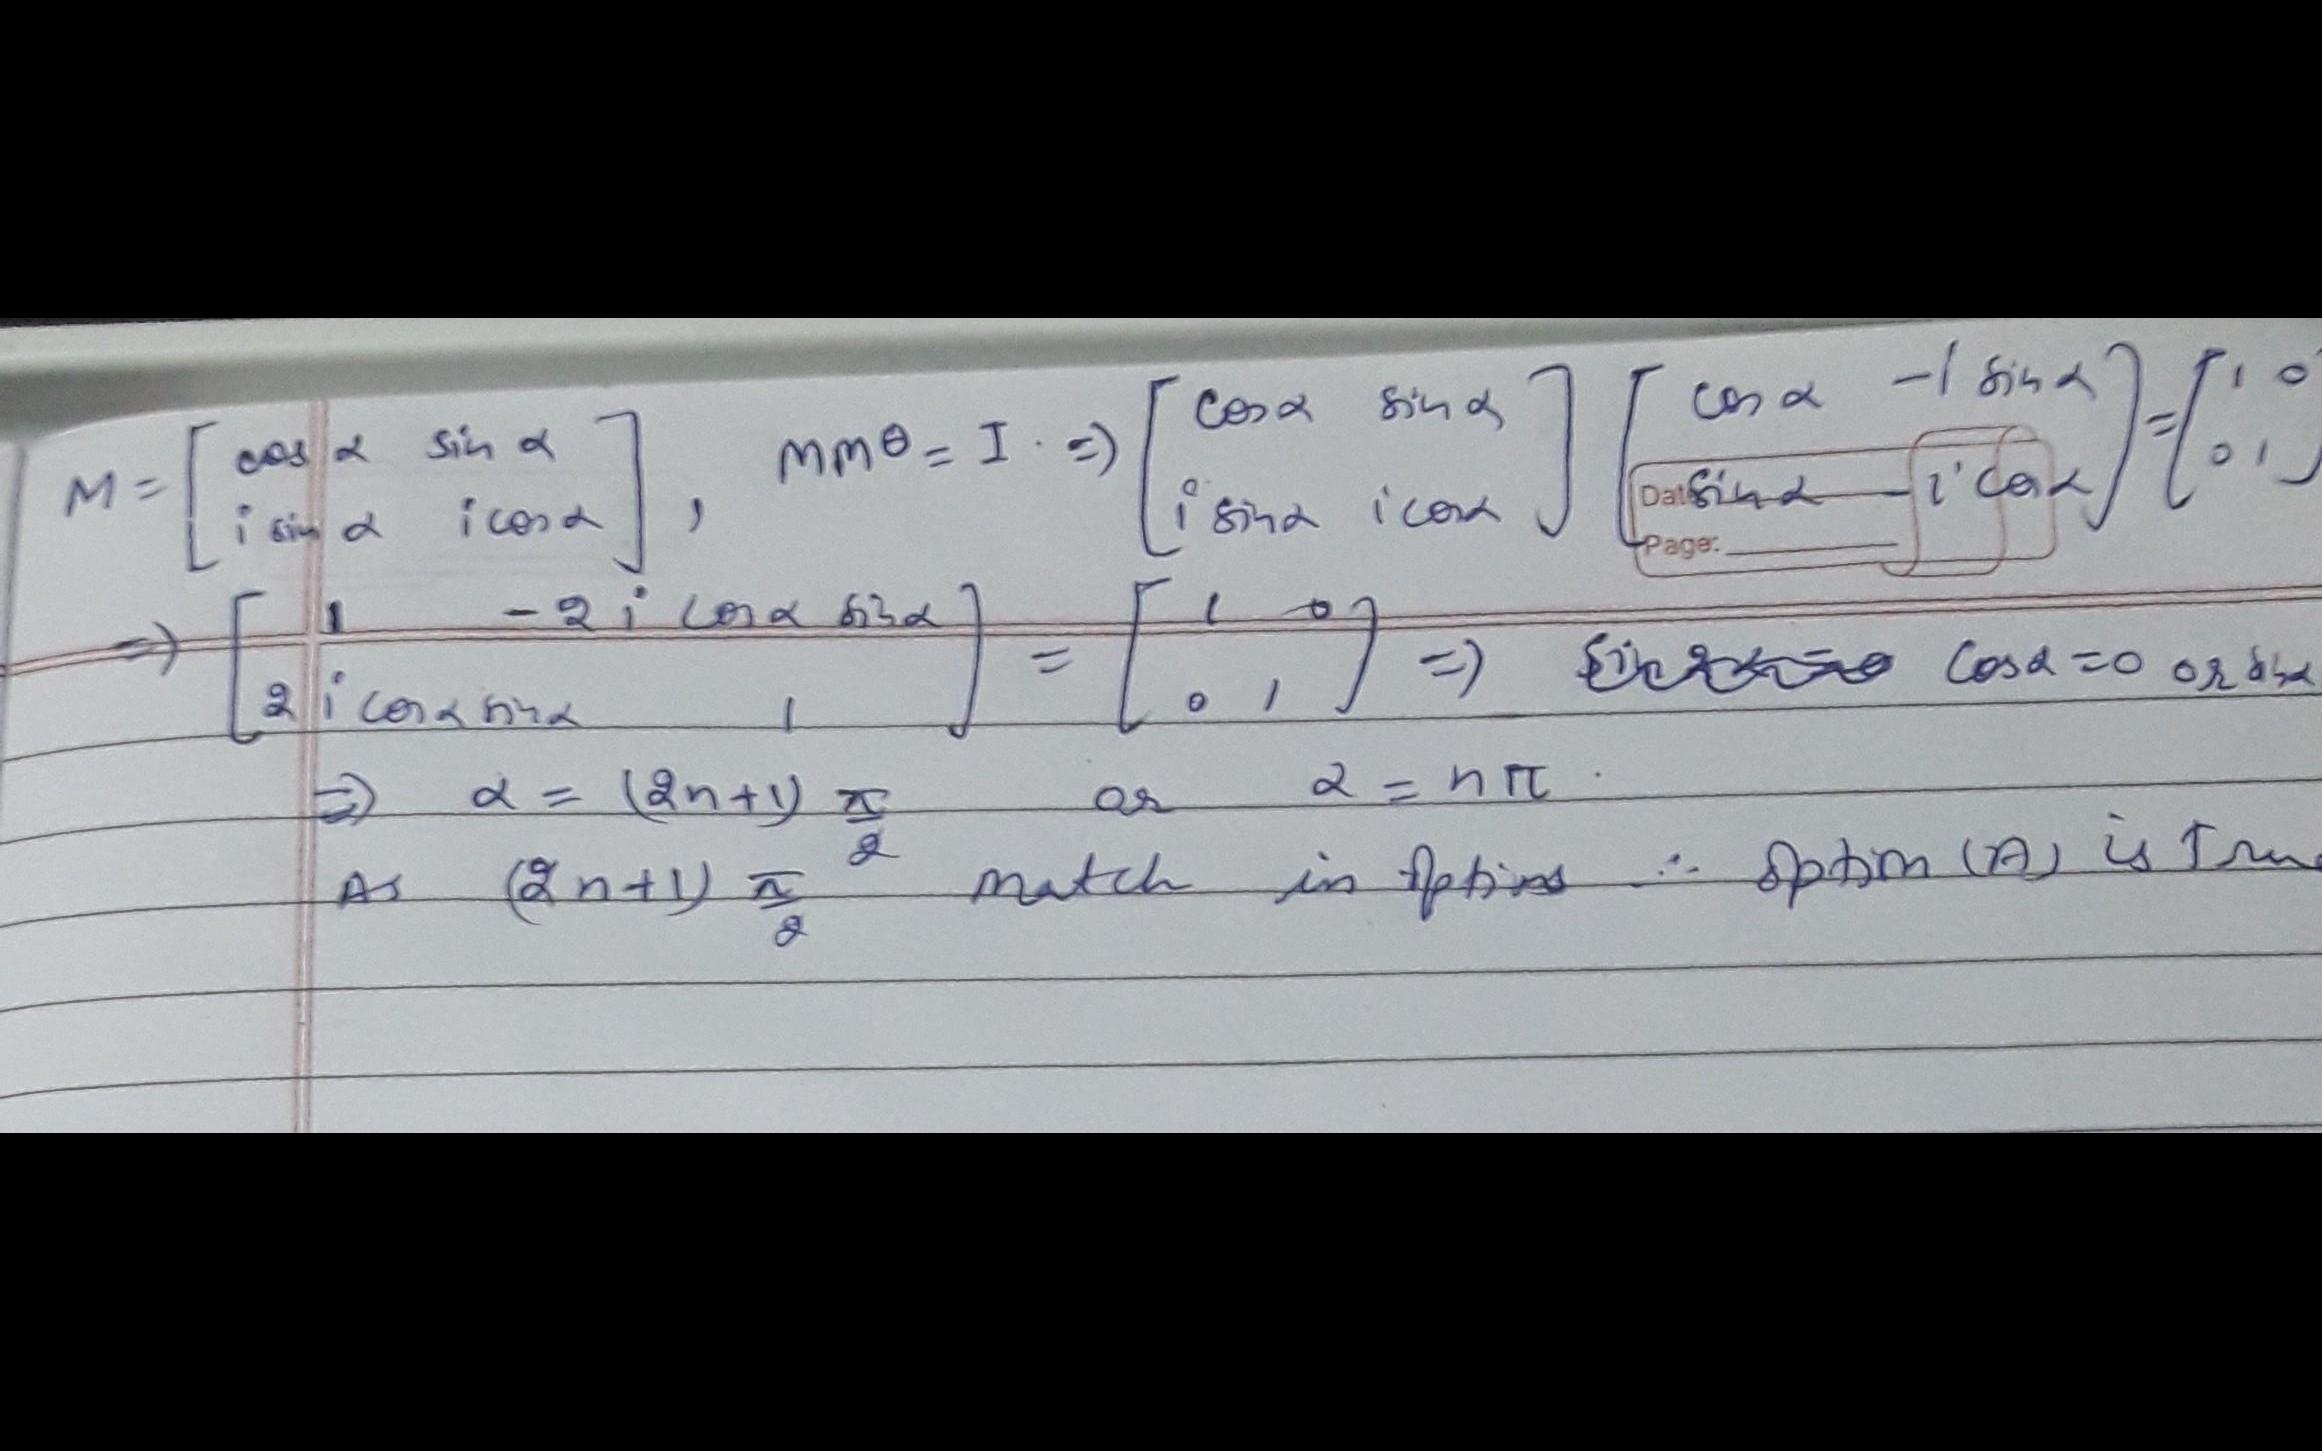 M = [cos α sin α; i sin α i cos α], MMθ = I. ⇒ [cos α sin α; i sin α i cos α] [cos α -i sin α; sin α -i cos α] = [1 0; 0 1]
Date
Page:
⇒ [1 -2 i cos α sin α; 2 i cos α sin α 1] = [1 0; 0 1] ⇒ cos α = 0 or sin α
⇒ α = (2n+1) π/2 or α = nπ.
As (2n+1) π/2 match in options ∴ option (A) is True